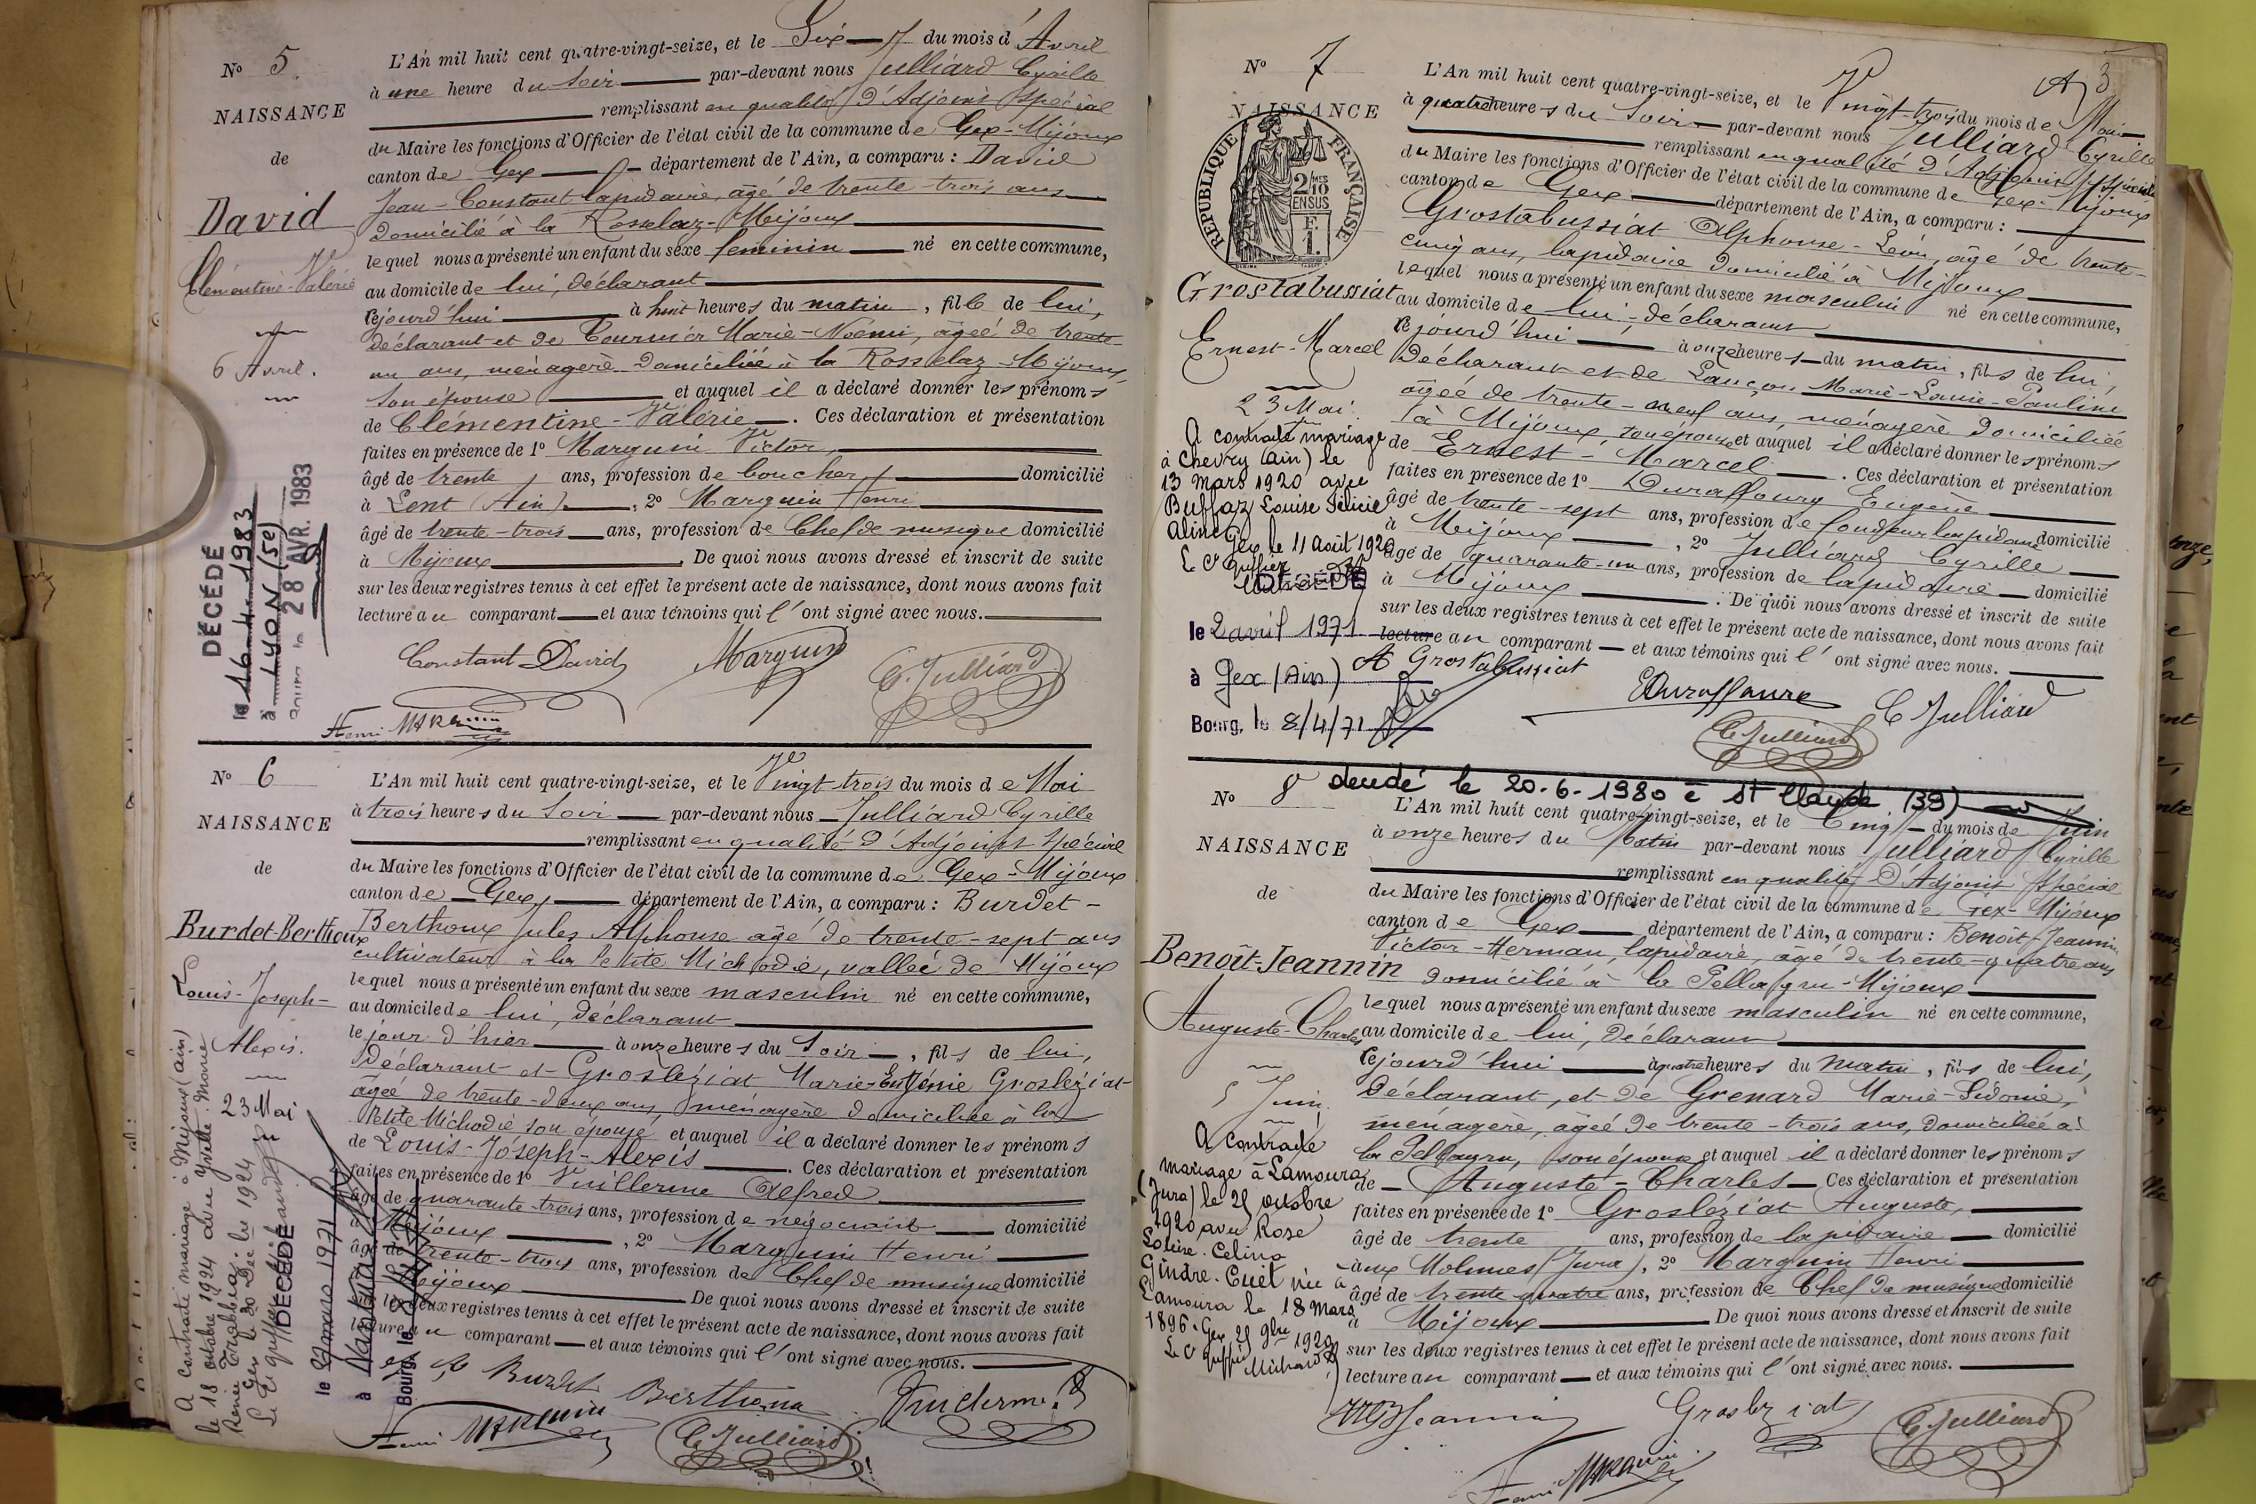 N° 5
NAISSANCE
de
David
Clémentine-Valérie
6 Avril.
DÉCÉDÉ
le 16.4.1983
à LYON (5e)
28 AVR. 1983
L'An mil huit cent quatre-vingt-seize, et le Six du mois d'Avril
à une heure du Soir par-devant nous Julliard Cyrille
remplissant en qualité d'Adjoint Spécial
du Maire les fonctions d'Officier de l'état civil de la commune de Gex-Mijoux
canton de Gex département de l'Ain, a comparu : David
Jean-Constant lapidaire, âgé de trente trois ans
domicilié à la Rosselaz-Mijoux
lequel nous a présenté un enfant du sexe féminin né en cette commune,
au domicile de lui, déclarant
cejourd'hui à huit heures du matin, fille de lui,
déclarant et de Tournier Marie-Noémi, âgée de trente
un ans, ménagère domiciliée à la Rosselaz-Mijoux,
son épouse et auquel il a déclaré donner les prénoms
de Clémentine-Valérie. Ces déclaration et présentation
faites en présence de 1° Marguin Victor,
âgé de trente ans, profession de boucher domicilié
à Lent (Ain), 2° Marguin Henri
âgé de trente-trois ans, profession de Chef de musique domicilié
à Mijoux De quoi nous avons dressé et inscrit de suite
sur les deux registres tenus à cet effet le présent acte de naissance, dont nous avons fait
lecture au comparant et aux témoins qui l'ont signé avec nous.
Constant David Marguin C. Julliard
Henri Marguin
N° 6
NAISSANCE
de
Burdet-Berthoux
Louis-Joseph-
Alexis.
23 Mai
A contracté mariage à Mijoux (ain)
le 18 octobre 1924 avec Yvette Marie
Gex le 30 Déc 1924
DÉCÉDÉ
le mars 1971
à Nantua
Bourg, le
L'An mil huit cent quatre-vingt-seize, et le Vingt trois du mois de Mai
à trois heures du Soir par-devant nous Julliard Cyrille
remplissant en qualité d'Adjoint Spécial
du Maire les fonctions d'Officier de l'état civil de la commune de Gex-Mijoux
canton de Gex, département de l'Ain, a comparu : Burdet-
Berthoux Jules Alphonse âgé de trente-sept ans
cultivateur à la Petite Michodie, vallée de Mijoux
lequel nous a présenté un enfant du sexe masculin né en cette commune,
au domicile de lui, déclarant
le jour d'hier à onze heures du Soir, fils de lui,
déclarant et Grosléziat Marie-Eugénie Grosléziat
âgée de trente-deux ans, ménagère domiciliée à la
Petite Michodie son épouse et auquel il a déclaré donner les prénoms
de Louis-Joseph-Alexis. Ces déclaration et présentation
faites en présence de 1° Vuillerme Alfred
âgé de quarante-trois ans, profession de négociant domicilié
Mijoux, 2° Marguin Henri
âgé de trente-trois ans, profession de Chef de musique domicilié
Mijoux De quoi nous avons dressé et inscrit de suite
les deux registres tenus à cet effet le présent acte de naissance, dont nous avons fait
lecture au comparant et aux témoins qui l'ont signé avec nous.
Burdet Berthoux Vuillerme
Henri Marguin C. Julliard
3
N° 7
NAISSANCE
RÉPUBLIQUE FRANÇAISE
2/10 MES
EN SUS
F
1
Grostabussiat
Ernest-Marcel
23 Mai.
A contracté mariage
à Chevry (ain) le
13 mars 1920 avec
Buffaz Louise Félicie
Aline
Gex le 11 Août 1920
DÉCÉDÉ
le 2 avril 1971
à Gex (Ain)
Bourg, le 8/4/71
L'An mil huit cent quatre-vingt-seize, et le Vingt-trois du mois de Mai
à quatre heures du Soir par-devant nous Julliard Cyrille
remplissant en qualité d'Adjoint Spécial
du Maire les fonctions d'Officier de l'état civil de la commune de Gex-Mijoux
canton de Gex département de l'Ain, a comparu :
Grostabussiat Alphonse-Léon, âgé de trente-
cinq ans, lapidaire domicilié à Mijoux
lequel nous a présenté un enfant du sexe masculin né en cette commune,
au domicile de lui-déclarant
cejourd'hui à onze heures du matin, fils de lui,
déclarant et de Lançon Marie-Louise-Pauline
âgée de trente-neuf ans, ménagère domiciliée
à Mijoux, son épouse et auquel il a déclaré donner les prénoms
de Ernest-Marcel. Ces déclaration et présentation
faites en présence de 1° Duraffourg Eugène
âgé de trente-sept ans, profession de lapidaire domicilié
à Mijoux, 2° Julliard Cyrille
âgé de quarante-un ans, profession de lapidaire domicilié
à Mijoux. De quoi nous avons dressé et inscrit de suite
sur les deux registres tenus à cet effet le présent acte de naissance, dont nous avons fait
lecture au comparant et aux témoins qui l'ont signé avec nous.
A Grostabussiat
C Julliard
C. Julliard
N° 8 décédé le 20-6-1980 à St Claude (39)
NAISSANCE
de
Benoît-Jeannin
Auguste-Charles
5 Juin.
A contracté
mariage à Lamoura
(Jura) le 25 octobre
1920 avec Rose
Celina
Gindre-Cuët née à
Lamoura le 18 mars
1896. Gex, 25 9bre 1920
L'An mil huit cent quatre-vingt-seize, et le Cinq du mois de Juin
à onze heures du Matin par-devant nous Julliard Cyrille
remplissant en qualité d'Adjoint Spécial
du Maire les fonctions d'Officier de l'état civil de la commune de Gex-Mijoux
canton de Gex département de l'Ain, a comparu : Benoît-Jeannin
Victor-Herman, lapidaire, âgé de trente-quatre ans
domicilié à la Pellagru-Mijoux
lequel nous a présenté un enfant du sexe masculin né en cette commune,
au domicile de lui, déclarant
cejourd'hui à quatre heures du matin, fils de lui,
déclarant, et de Grenard Marie-Sidonie,
ménagère, âgée de trente-trois ans, domiciliée à
la Pellagru, son épouse et auquel il a déclaré donner les prénoms
de Auguste-Charles Ces déclaration et présentation
faites en présence de 1° Grosléziat Auguste,
âgé de trente ans, profession de lapidaire domicilié
aux Molunes (Jura), 2° Marguin Henri
âgé de trente quatre ans, profession de Chef de musique domicilié
à Mijoux De quoi nous avons dressé et inscrit de suite
sur les deux registres tenus à cet effet le présent acte de naissance, dont nous avons fait
lecture au comparant et aux témoins qui l'ont signé avec nous.
Jeannin Grosleziat C. Julliard
Henri Marguin